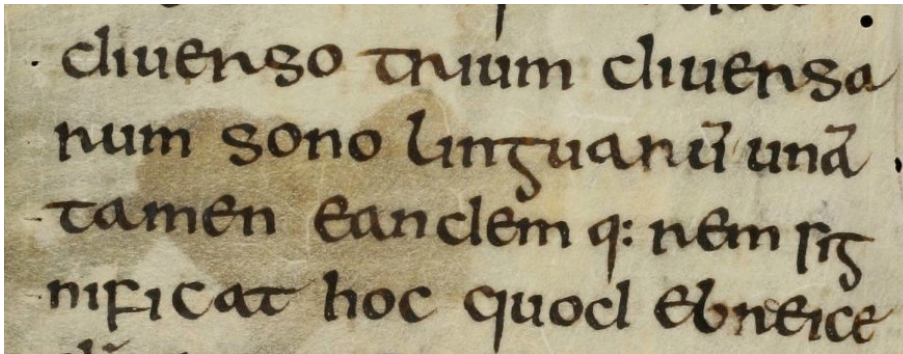 diuerso trium diuersa
rum sono linguarū unā
tamen eandem q: rem sig
nificat hoc quod ebreice